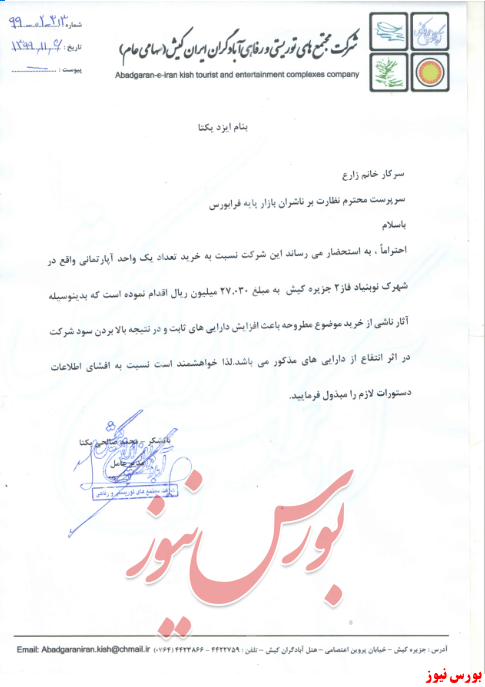 شرکت مجتمع های توریستی و رفاهی آبادگران ایران کیش (سهامی عام)
Abadgaran-e-iran kish tourist and entertainment complexes company
شماره :
تاریخ :
پیوست :
بنام ایزد یکتا
سرکار خانم زارع
سرپرست محترم نظارت بر ناشران بازار پایه فرابورس
باسلام
احتراماً ، به استحضار می رساند این شرکت نسبت به خرید تعداد یک واحد آپارتمانی واقع در
شهرک نوبنیاد فاز۲ جزیره کیش به مبلغ ۲۷.۰۳۰ میلیون ریال اقدام نموده است که بدینوسیله
آثار ناشی از خرید موضوع مطروحه باعث افزایش دارایی های ثابت و در نتیجه بالا بردن سود شرکت
در اثر انتفاع از دارایی های مذکور می باشد.لذا خواهشمند است نسبت به افشای اطلاعات
دستورات لازم را مبذول فرمایید.
باتشکر – محمد صالحی یکتا
مدیرعامل
شرکت مجتمع های توریستی و رفاهی
بورس نیوز
آدرس : جزیره کیش – خیابان پروین اعتصامی – هتل آبادگران کیش – تلفن : ۴۴۲۲۷۵۹ – ۴۴۲۳۸۶۶ (۰۷۶۴) Email: Abadgaraniran.kish@chmail.ir
بورس نیوز